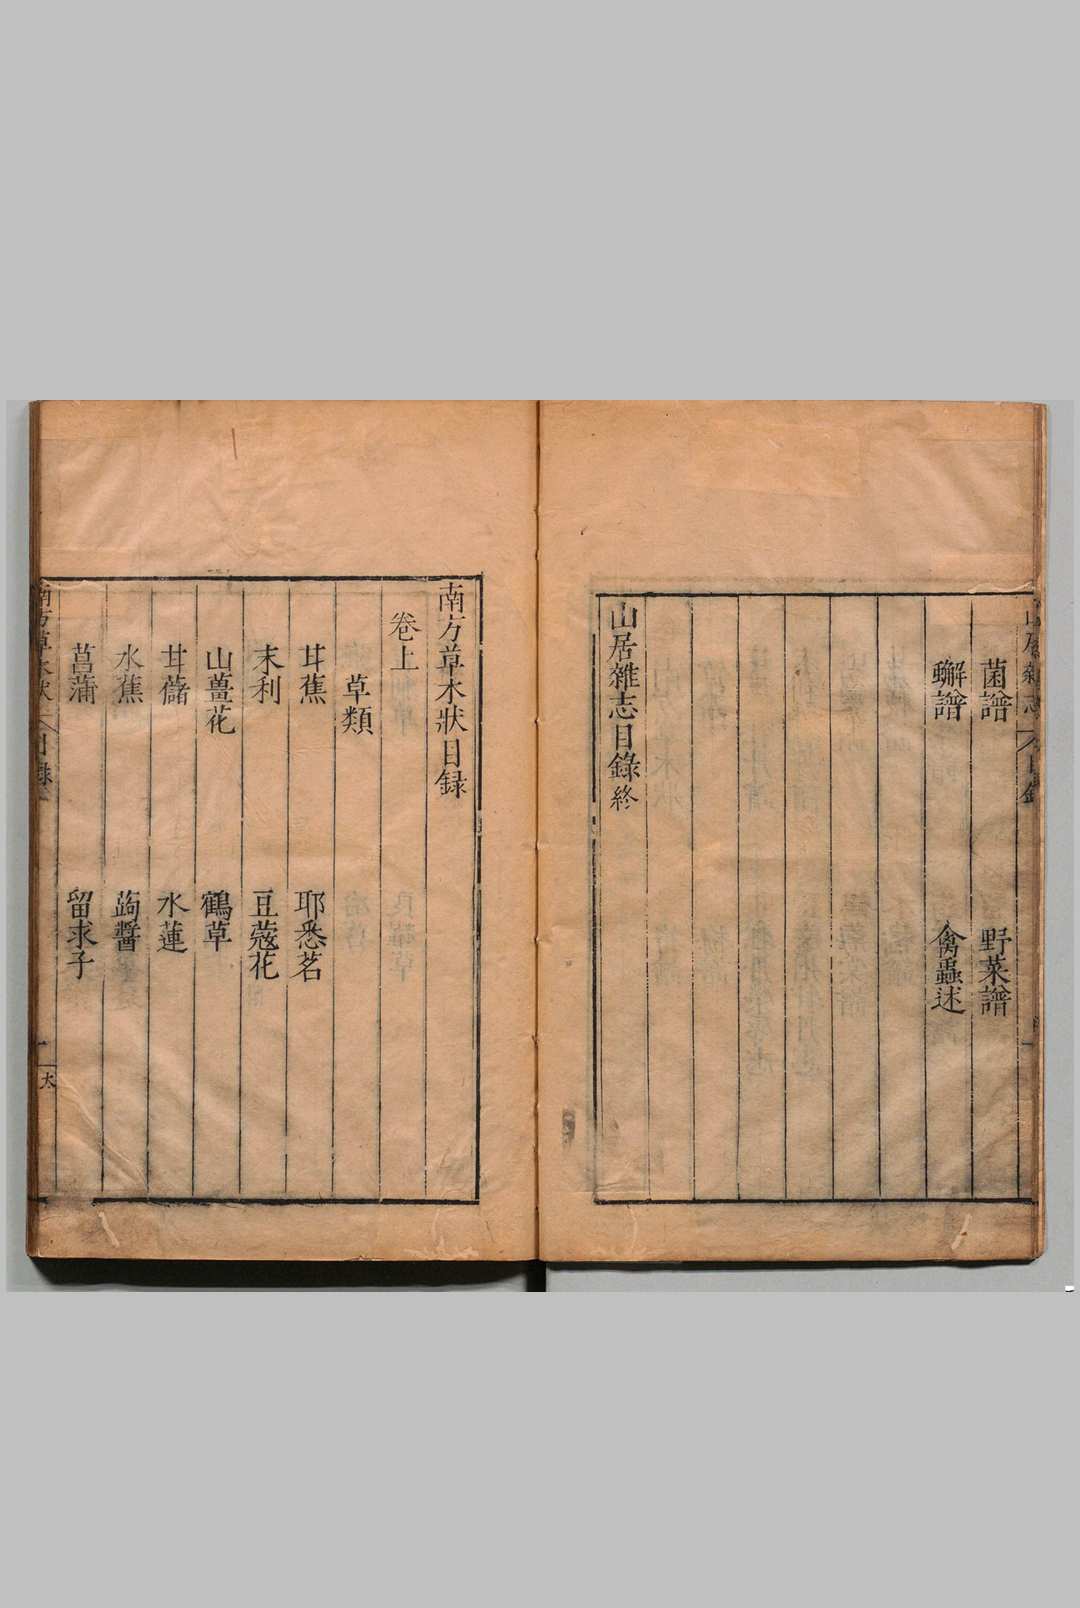 菌譜　野菜譜
蠏譜　禽蟲述
山居雜志目錄終
南方草木狀目録
卷上
草類
甘蕉　耶悉茗
末利　豆蔻花
山薑花　鶴草
甘藷　水蓮
水蕉　蒟醬
菖蒲　留求子
南方草木狀